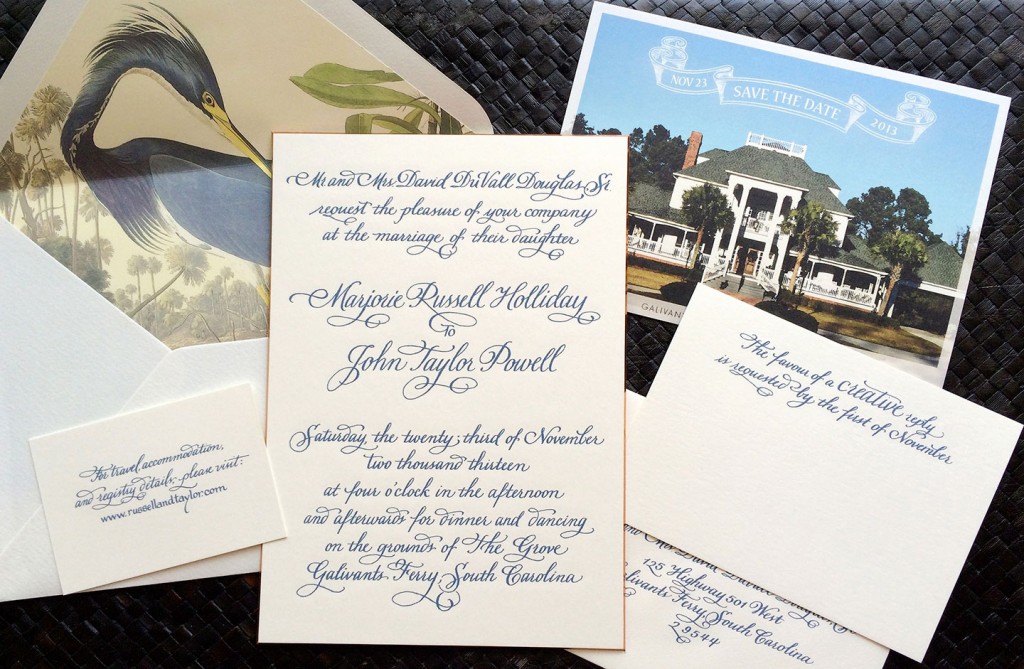 Mr and Mrs David DuVall Douglas Sr
request the pleasure of your company
at the marriage of their daughter
Marjorie Russell Holliday
To
John Taylor Powell
Saturday, the twenty-third of November
two thousand thirteen
at four o'clock in the afternoon
and afterwards for dinner and dancing
on the grounds of The Grove
Galivants Ferry, South Carolina
For travel accommodation,
and registry details, please visit:
www.russellandtaylor.com
NOV 23
SAVE THE DATE
2013
The favour of a creative reply
is requested by the first of November
125 Highway 501 West
Ferry, South Carolina
29544